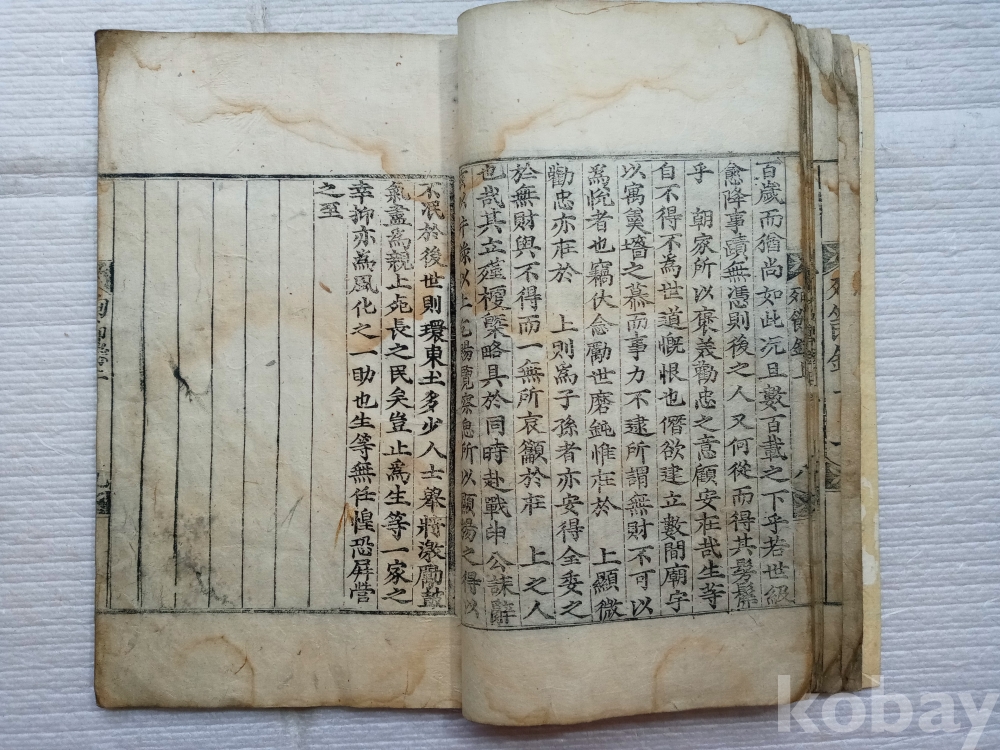 百歲而猶尚如此况且數百載之下乎若世級
愈降事蹟無憑則後之人又何從而得其髣髴
乎 朝家所以褒義勸忠之意顧安在哉生等
自不得不為世道慨恨也僭欲建立數間廟宇
以寓羹墻之慕而事力不逮所謂無財不可以
為悅者也竊伏念勵世磨鈍惟在於 上顯微
勸忠亦在於 上則為子孫者亦安得全委之
於無財與不得而一無所哀籲於在 上之人
也哉其立殣櫌槩略具於同時赴戰申公誄辭
察
所以
揚之得以
不泯於後世則環東土多少人士擧將激勵鼓
氣盡為親上死長之民矣豈止為生等一家之
幸抑亦為風化之一助也生等無任惶恐屏營
之至
kobay